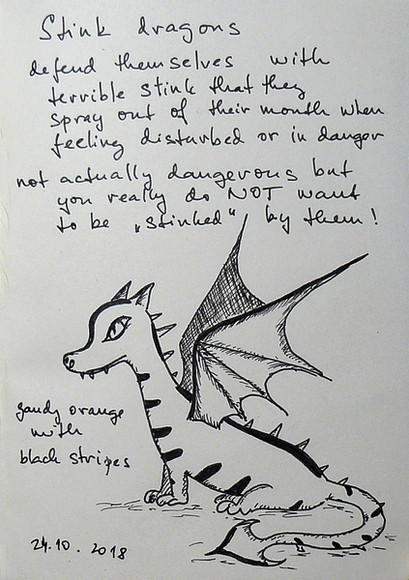 Stink dragons
defend themselves with
terrible stink that they
spray out of their mouth when
feeling disturbed or in danger
not actually dangerous but
you really do NOT want
to be „stinked“ by them!
gaudy orange
with
black stripes
24.10.2018